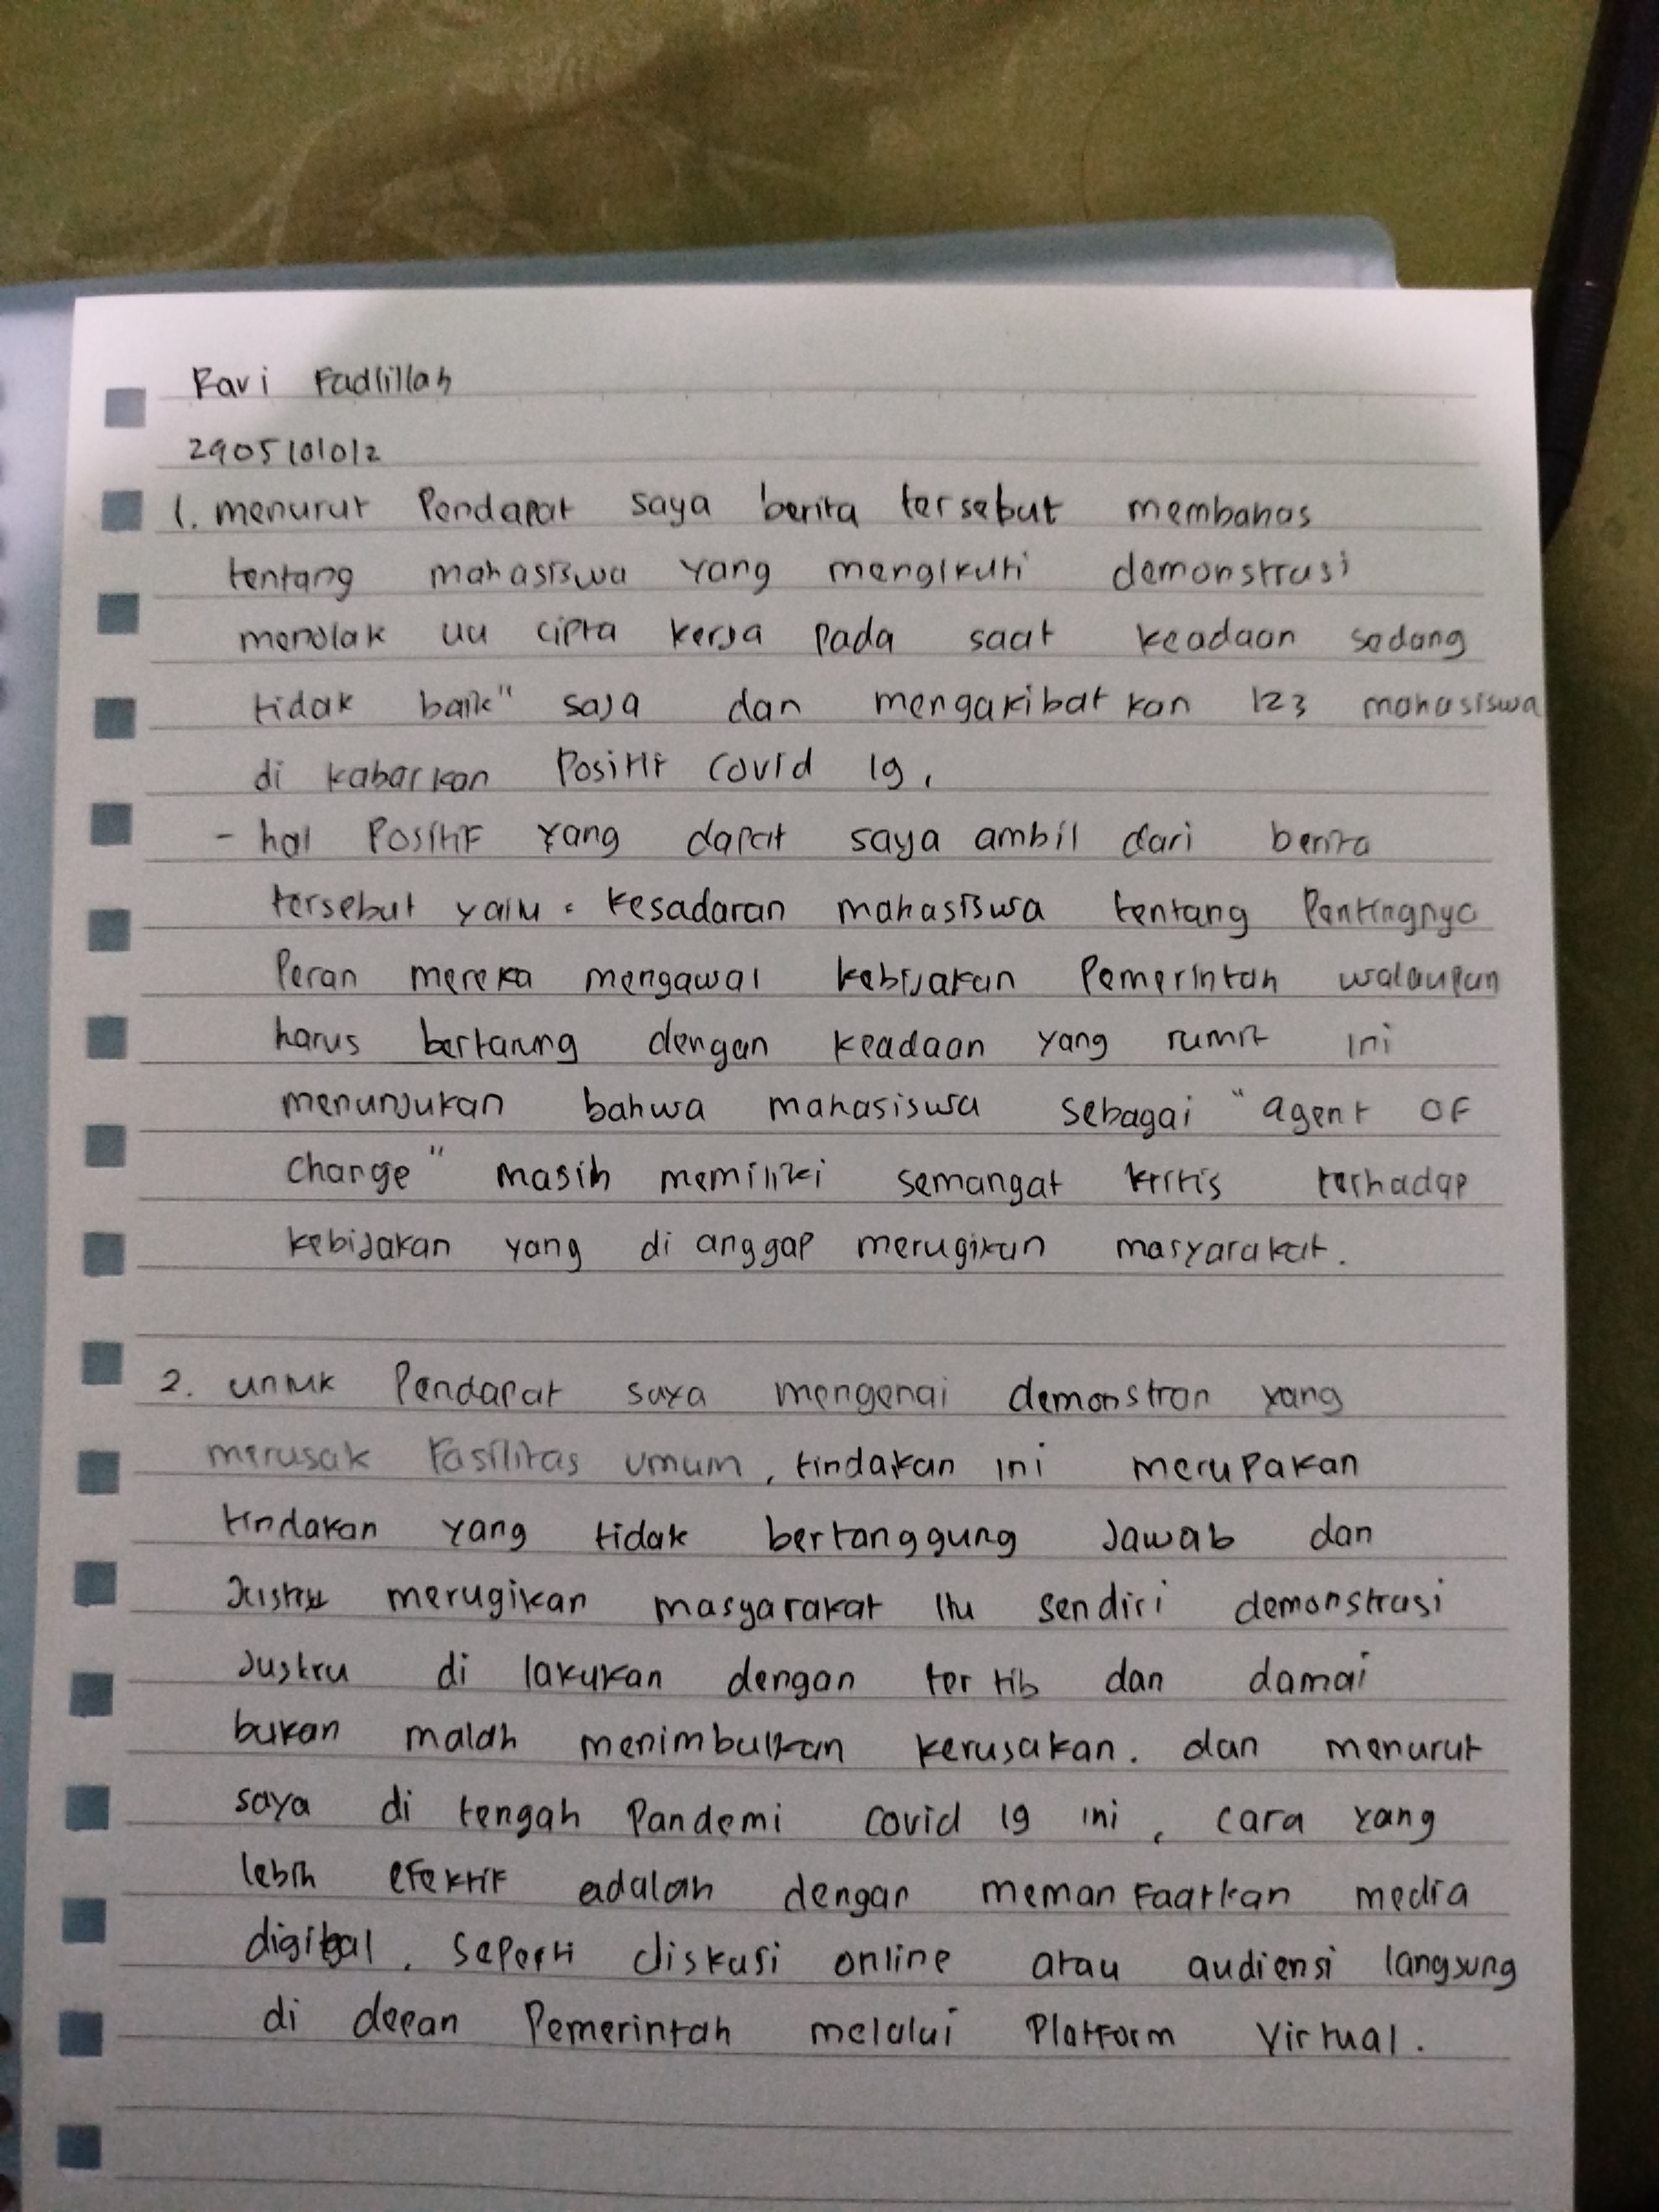 Ravi Fadlillah
2905101012
1. menurut Pendapat saya berita tersebut membahas
tentang mahasiswa yang mengikuti demonstrasi
menolak uu cipta kerja pada saat keadaan sedang
tidak baik" saja dan mengakibatkan 123 mahasiswa
di kabarkan Positif Covid 19.
- hal Positif yang dapat saya ambil dari berita
tersebut yaitu : kesadaran mahasiswa tentang Pentingnya
Peran mereka mengawal kebijakan Pemerintah walaupun
harus bertarung dengan keadaan yang rumit ini
menunjukan bahwa mahasiswa sebagai "agent OF
change" masih memiliki semangat kritis terhadap
kebijakan yang di anggap merugikan masyarakat.
2. untuk Pendapat saya mengenai demonstran yang
merusak Fasilitas umum, tindakan ini merupakan
tindakan yang tidak bertanggung Jawab dan
Justru merugikan masyarakat itu sendiri demonstrasi
Justru di lakukan dengan tertib dan damai
bukan malah menimbulkan kerusakan. dan menurut
saya di tengah Pandemi Covid 19 ini, cara yang
lebih eFektiF adalah dengan memanFaatkan media
digital. Seperti diskusi online atau audiensi langsung
di depan Pemerintah melalui PlatForm Virtual.